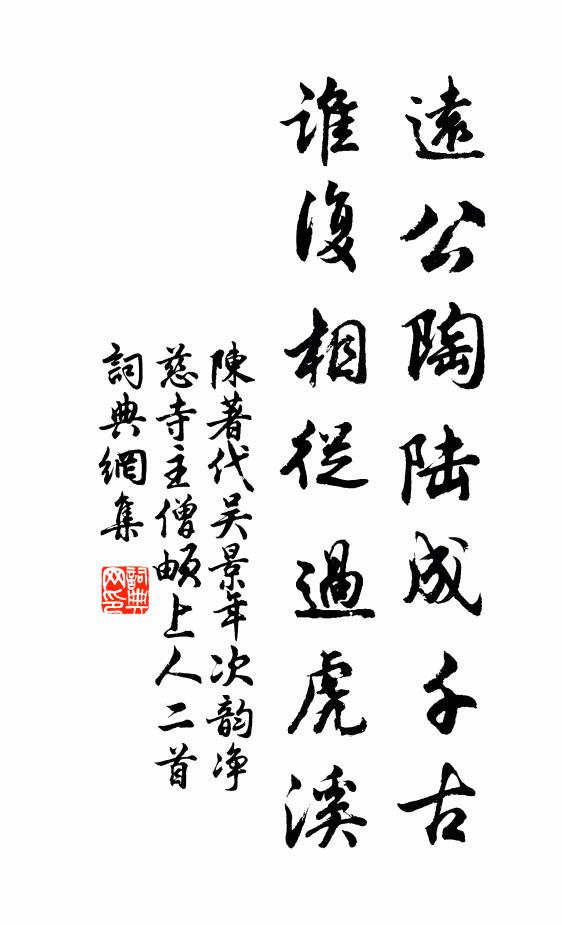 遠公陶陆成千古
誰復相從過虎溪
陳著代吴景年次韵净
慈寺主僧頔上人二首
詞典網集
詞典
网印